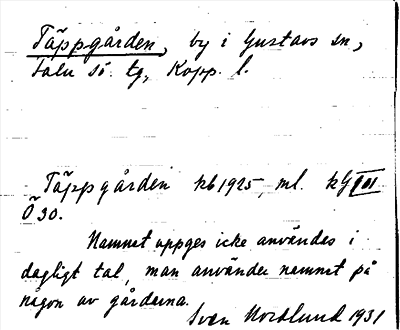 Täppgården, by i Gustavs sn,
Falu sö. tg, Kopp. l.
Täppgården kb 1925, ml. kG III
Ö 30.
Namnet uppges icke användes i
dagligt tal, man använder namnet på
någon av gårdarna.
Sven Nordlund 1931